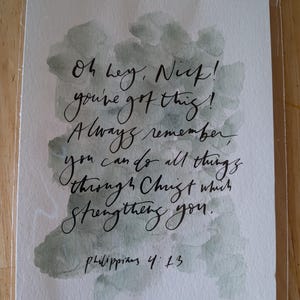 Oh hey, Nick!
you've got this!
Always remember,
you can do all things
through Christ which
strengthens you.
philippians 4:13